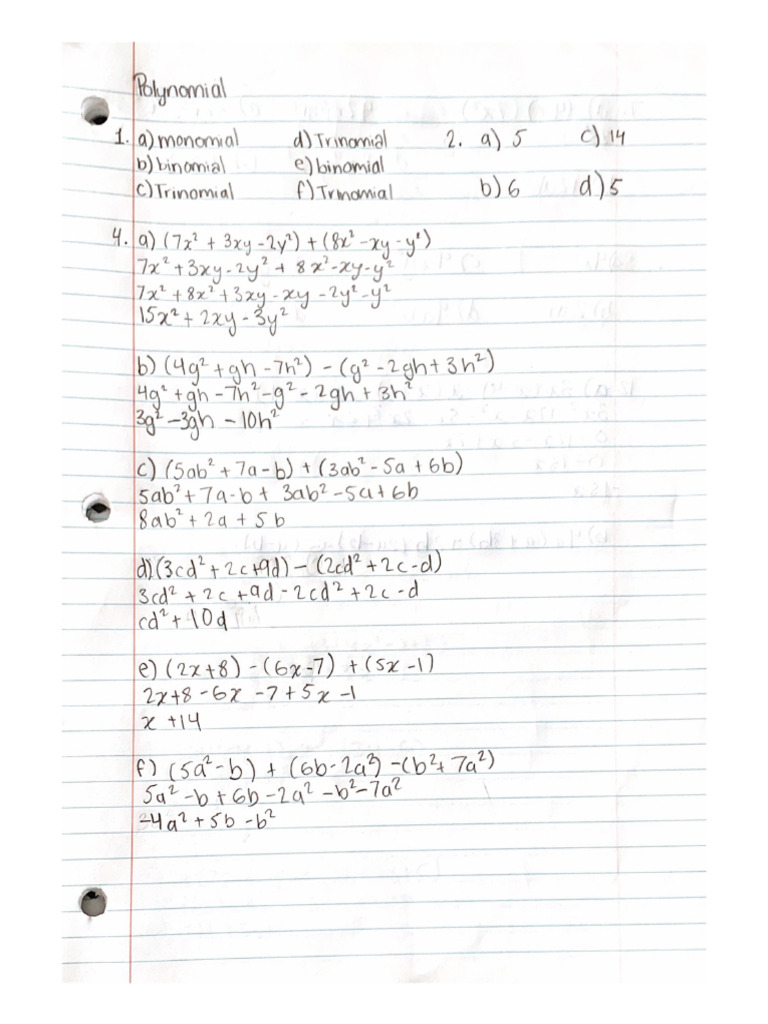 Polynomial
1. a) monomial d) Trinomial 2. a) 5 c) 14
b) binomial e) binomial
c) Trinomial f) Trinomial b) 6 d) 5
4. a) (7x² + 3xy - 2y²) + (8x² - xy - y²)
7x² + 3xy - 2y² + 8x² - xy - y²
7x² + 8x² + 3xy - xy - 2y² - y²
15x² + 2xy - 3y²
b) (4g² + gh - 7h²) - (g² - 2gh + 3h²)
4g² + gh - 7h² - g² - 2gh + 3h²
3g² - 3gh - 10h²
c) (5ab² + 7a - b) + (3ab² - 5a + 6b)
5ab² + 7a - b + 3ab² - 5a + 6b
8ab² + 2a + 5b
d) (3cd² + 2c + 9d) - (2cd² + 2c - d)
3cd² + 2c + 9d - 2cd² + 2c - d
cd² + 10d
e) (2x + 8) - (6x - 7) + (5x - 1)
2x + 8 - 6x - 7 + 5x - 1
x + 14
f) (5a² - b) + (6b - 2a²) - (b² + 7a²)
5a² - b + 6b - 2a² - b² - 7a²
-4a² + 5b - b²